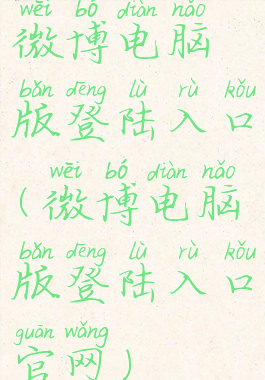 wēi bó diàn nǎo
微博电脑
bǎn dēng lù rù kǒu
版登陆入口
wēi bó diàn nǎo
(微博电脑
bǎn dēng lù rù kǒu
版登陆入口
guān wǎng
官网)